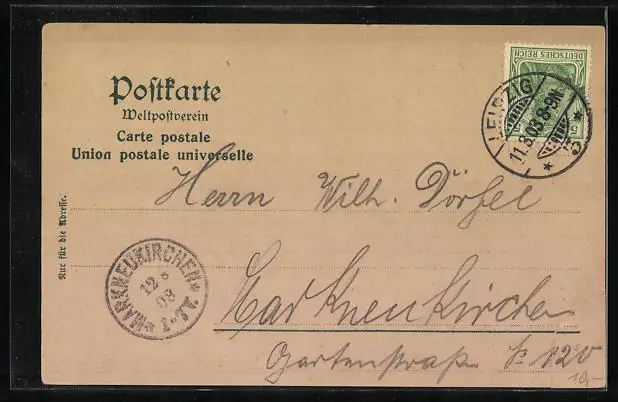 DEUTSCHES REICH
5
Postkarte
Weltpostverein
Carte postale
Union postale universelle
LEIPZIG
11.8.03 8-9N.
* 3 *
Nur für die Adresse.
Herrn Wilh. Dörfel
MARKNEUKIRCHEN
12 8
03
Markneukirchen
Gartenstraße
120
10,-